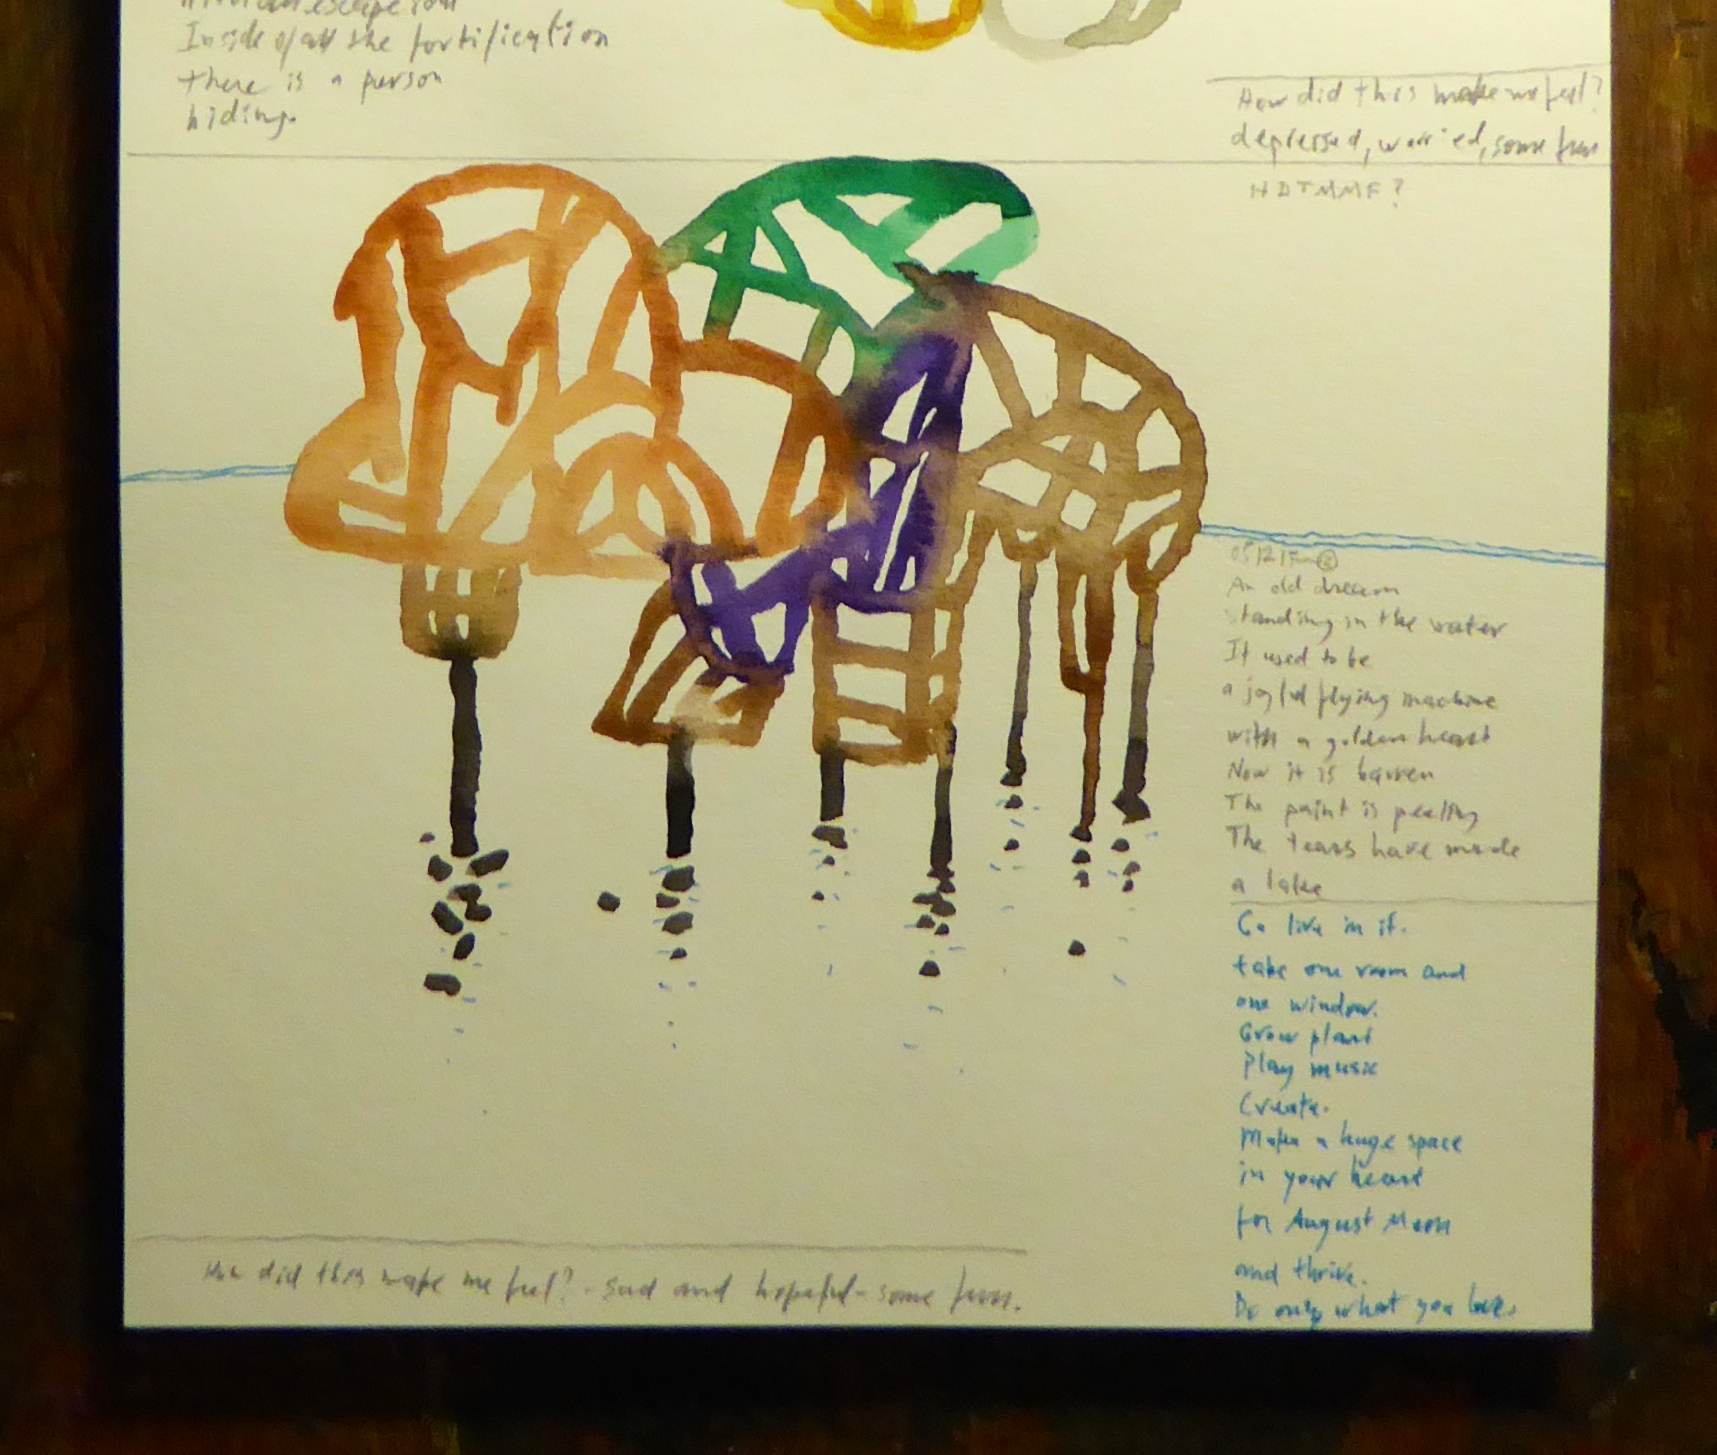 Inside of all the fortification
there is a person
hiding.
How did this make me feel?
depressed, worried, some fun
HDTMMF?
An old dream
standing in the water
It used to be
a joyful flying machine
with a golden heart
Now it is barren
The paint is peeling
The tears have made
a lake
Go live in it.
take one room and
one window.
Grow plant
Play music
Create.
Make a huge space
in your heart
for August Moon
and thrive.
Do only what you love.
How did this make me feel? - sad and hopeful - some fun.